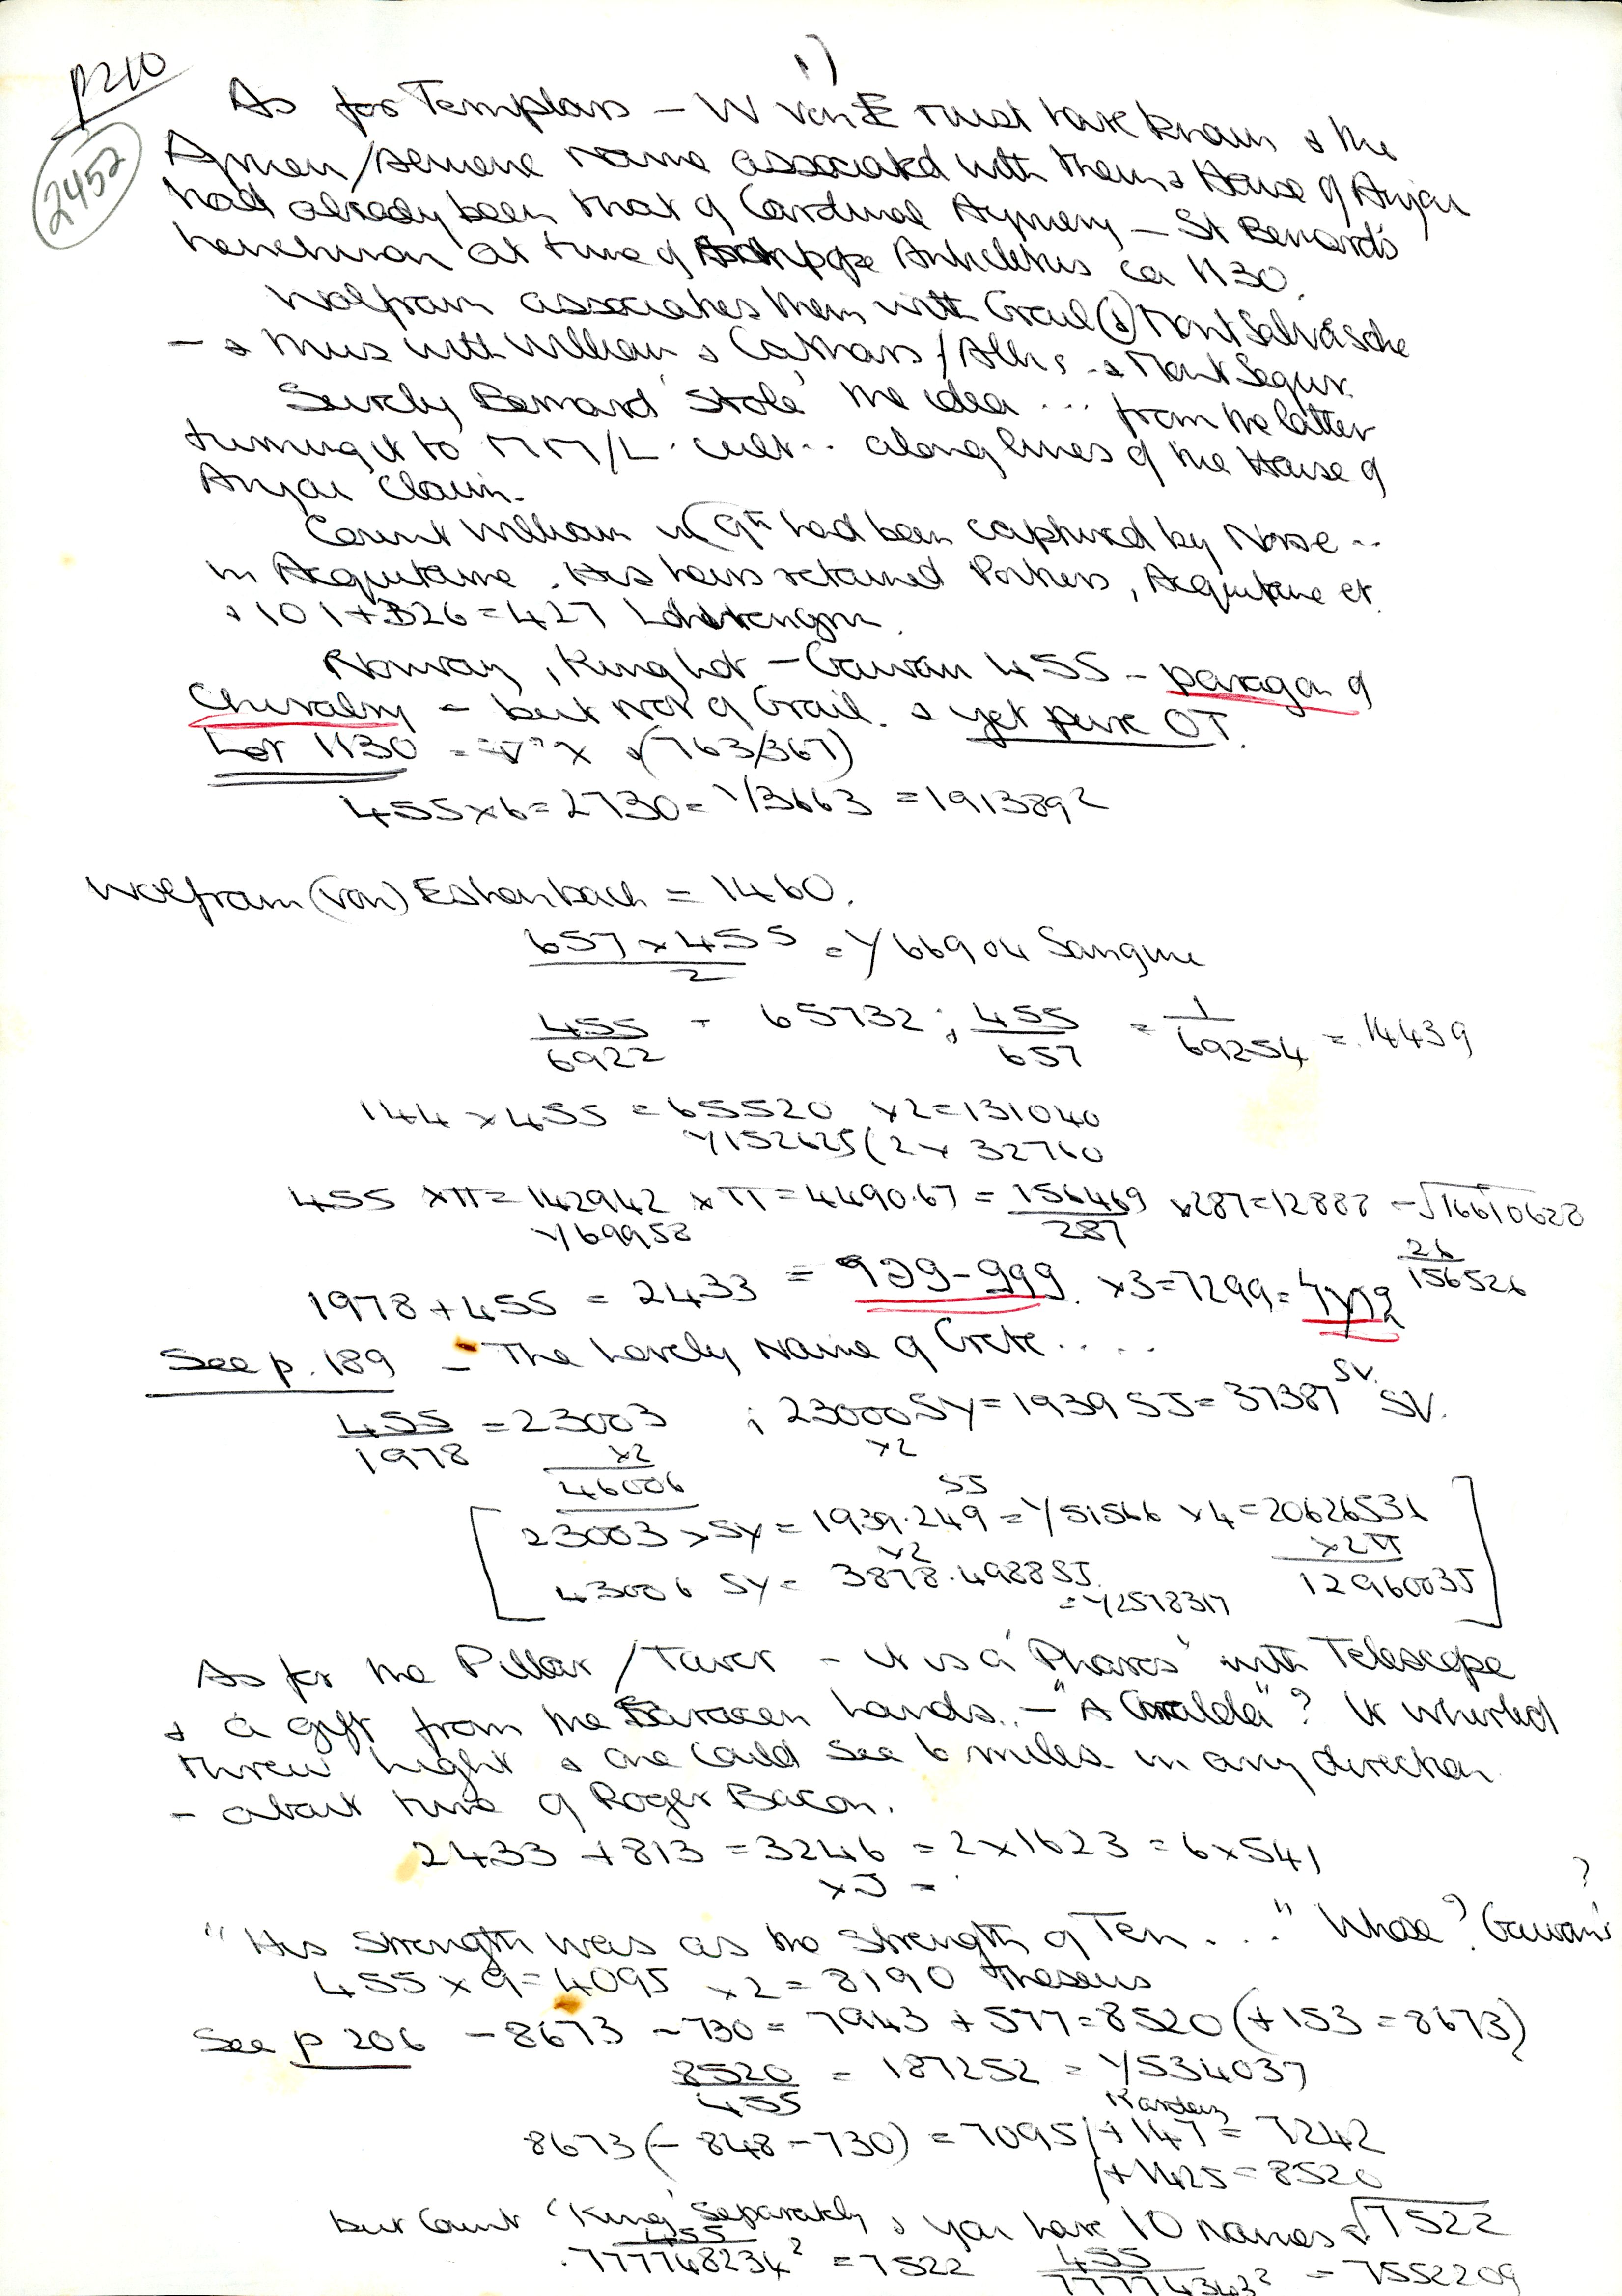 p210
1)
2452
As for Templars – W von E must have known & the
Aymeri / name associated with them & House of Anjou
had already been that of Cardinal Aymery – St Bernard's
henchman at time of Antipope Anticletus ca 1130.
Wolfram associates them with Grail (&) Mont Salväsche
– & thus with William & Cathars / Albi & Mont Segur.
Surely Bernard 'stole' the idea ... from the latter
turning it to MM/L. cult .. along lines of the House of
Anjou claim.
Count William in C9th had been captured by Norse ..
in Acquitaine. His heirs retained Poitiers, Acquitane et.
& 101+326=427
Norway, King Lot – Gawan 455 – paragon of
Chivalry – but not of Grail. & yet pure OT.
Lot 1130 = x √(763/367)
455x6=2730=1/3663 =1913892
Wolfram (von) Eshenbach = 1460.
657x455 / 2 = 1/66904 Sangue
455/6922 = 65732 ; 455/657 = 1/69254 = .14439
144 x 455 = 65520 x2=131040
1/152625 (2x 32760
455 xπ= 142942 xπ=4490.67 = 156469/287 x287=12888 =√16610628
1/69958
26/156526
1978+455 = 2433 = 929-999. x3=7299=
See p. 189 – The Lovely Name of Crete . . . .
455/1978 =23003 ; 23000SY=1939 SJ= 37387 SV.
x2 x2
46006
[23003 x SY = 1939.249 SJ = 1/51566 x4=20626531
x2 x2π
43006 SY= 3878.4988SJ. 1296003J]
=1/2578317
As for the Pillar / Tower – it is a 'Pharos' with Telescope
& a gift from the Saracen lands. – "A Giralda"? It whirled
threw light & one could see 6 miles in any direction
– about time of Roger Bacon.
2433 +813 =3246 = 2x1623 = 6x541
xJ =
"His strength was as the strength of Ten. . ." Whose? Gawan's?
455x9=4095 x2=8190 Theseus
See p 206 – 8673 – 730 = 7943 + 577=8520 (+153=8673)
8520/455 = 187252 = 1/534037
8673 (– 848 – 730) = 7095 /+147 = 7242
/+1425 = 8520
but Count 'King' separately & you have 10 names & √7522
455/.777748234² =7522 455/77774343² = 7552209